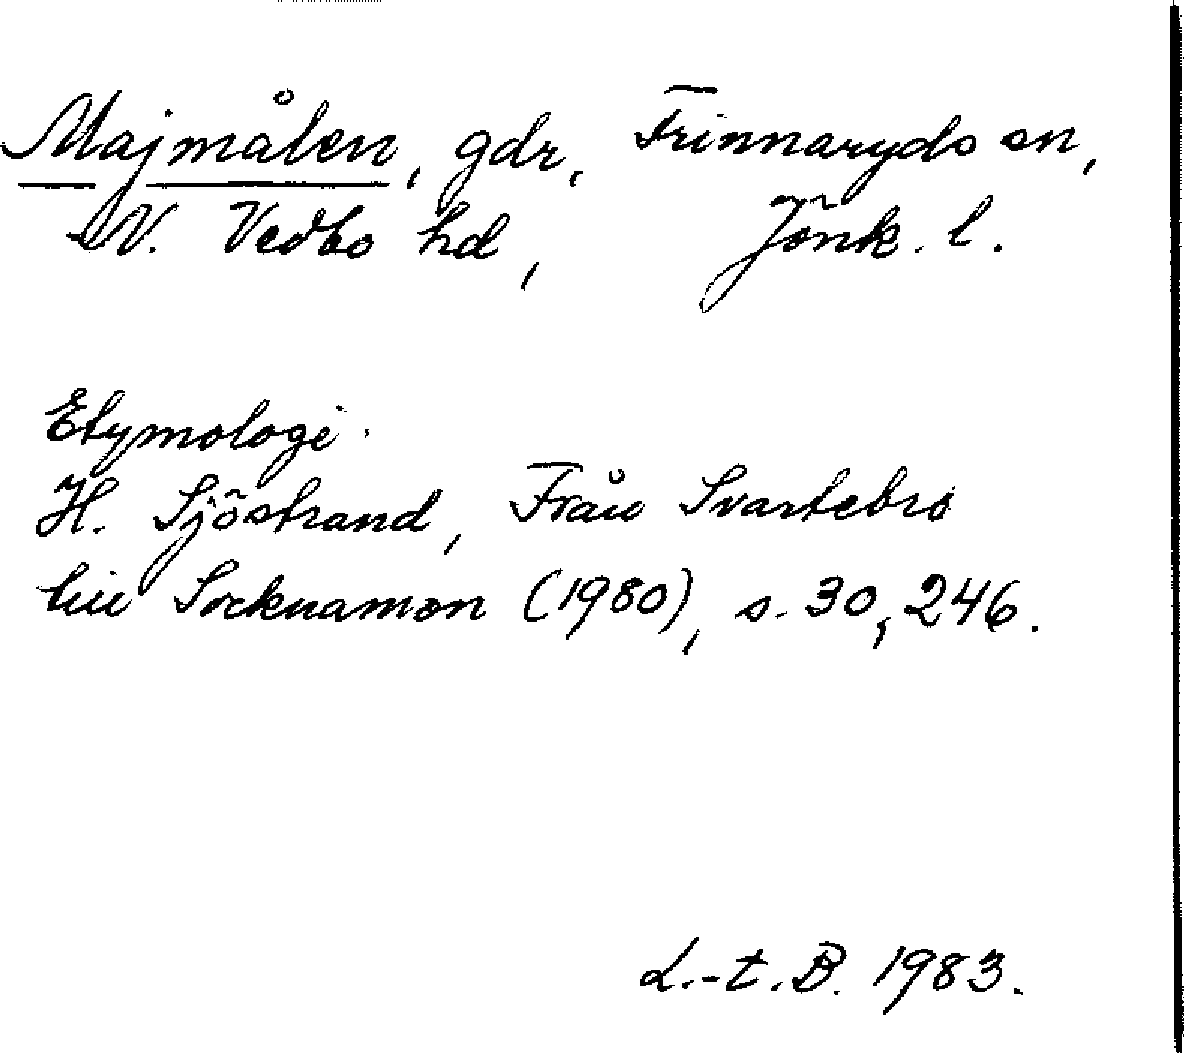 Majmålen, gdr, Frinnaryds sn,
N. Vedbo hd, Jönk. l.
Etymologi.
H. Sjöstrand, Från Svartebro
till Socknamon (1980), s. 30, 246.
L.-t. B. 1983.